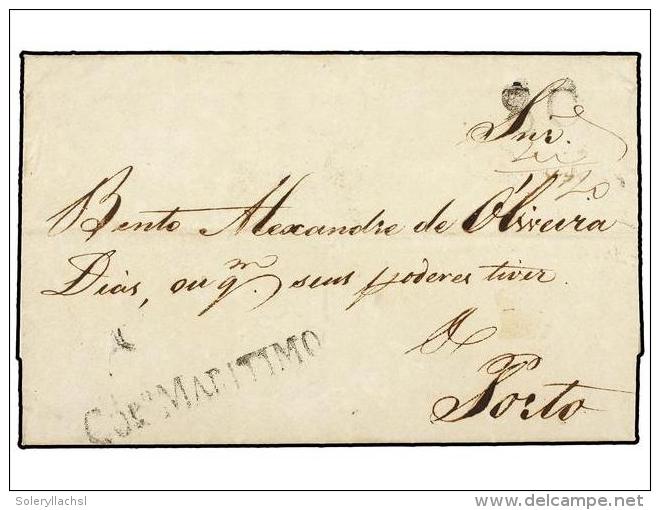 80
Snr.
Bento Alexandre de Oliveira
Dias, ou qm. seus poderes tiver.
Corº MARITIMO
Porto
Soleryllachsl
©delcampe.net